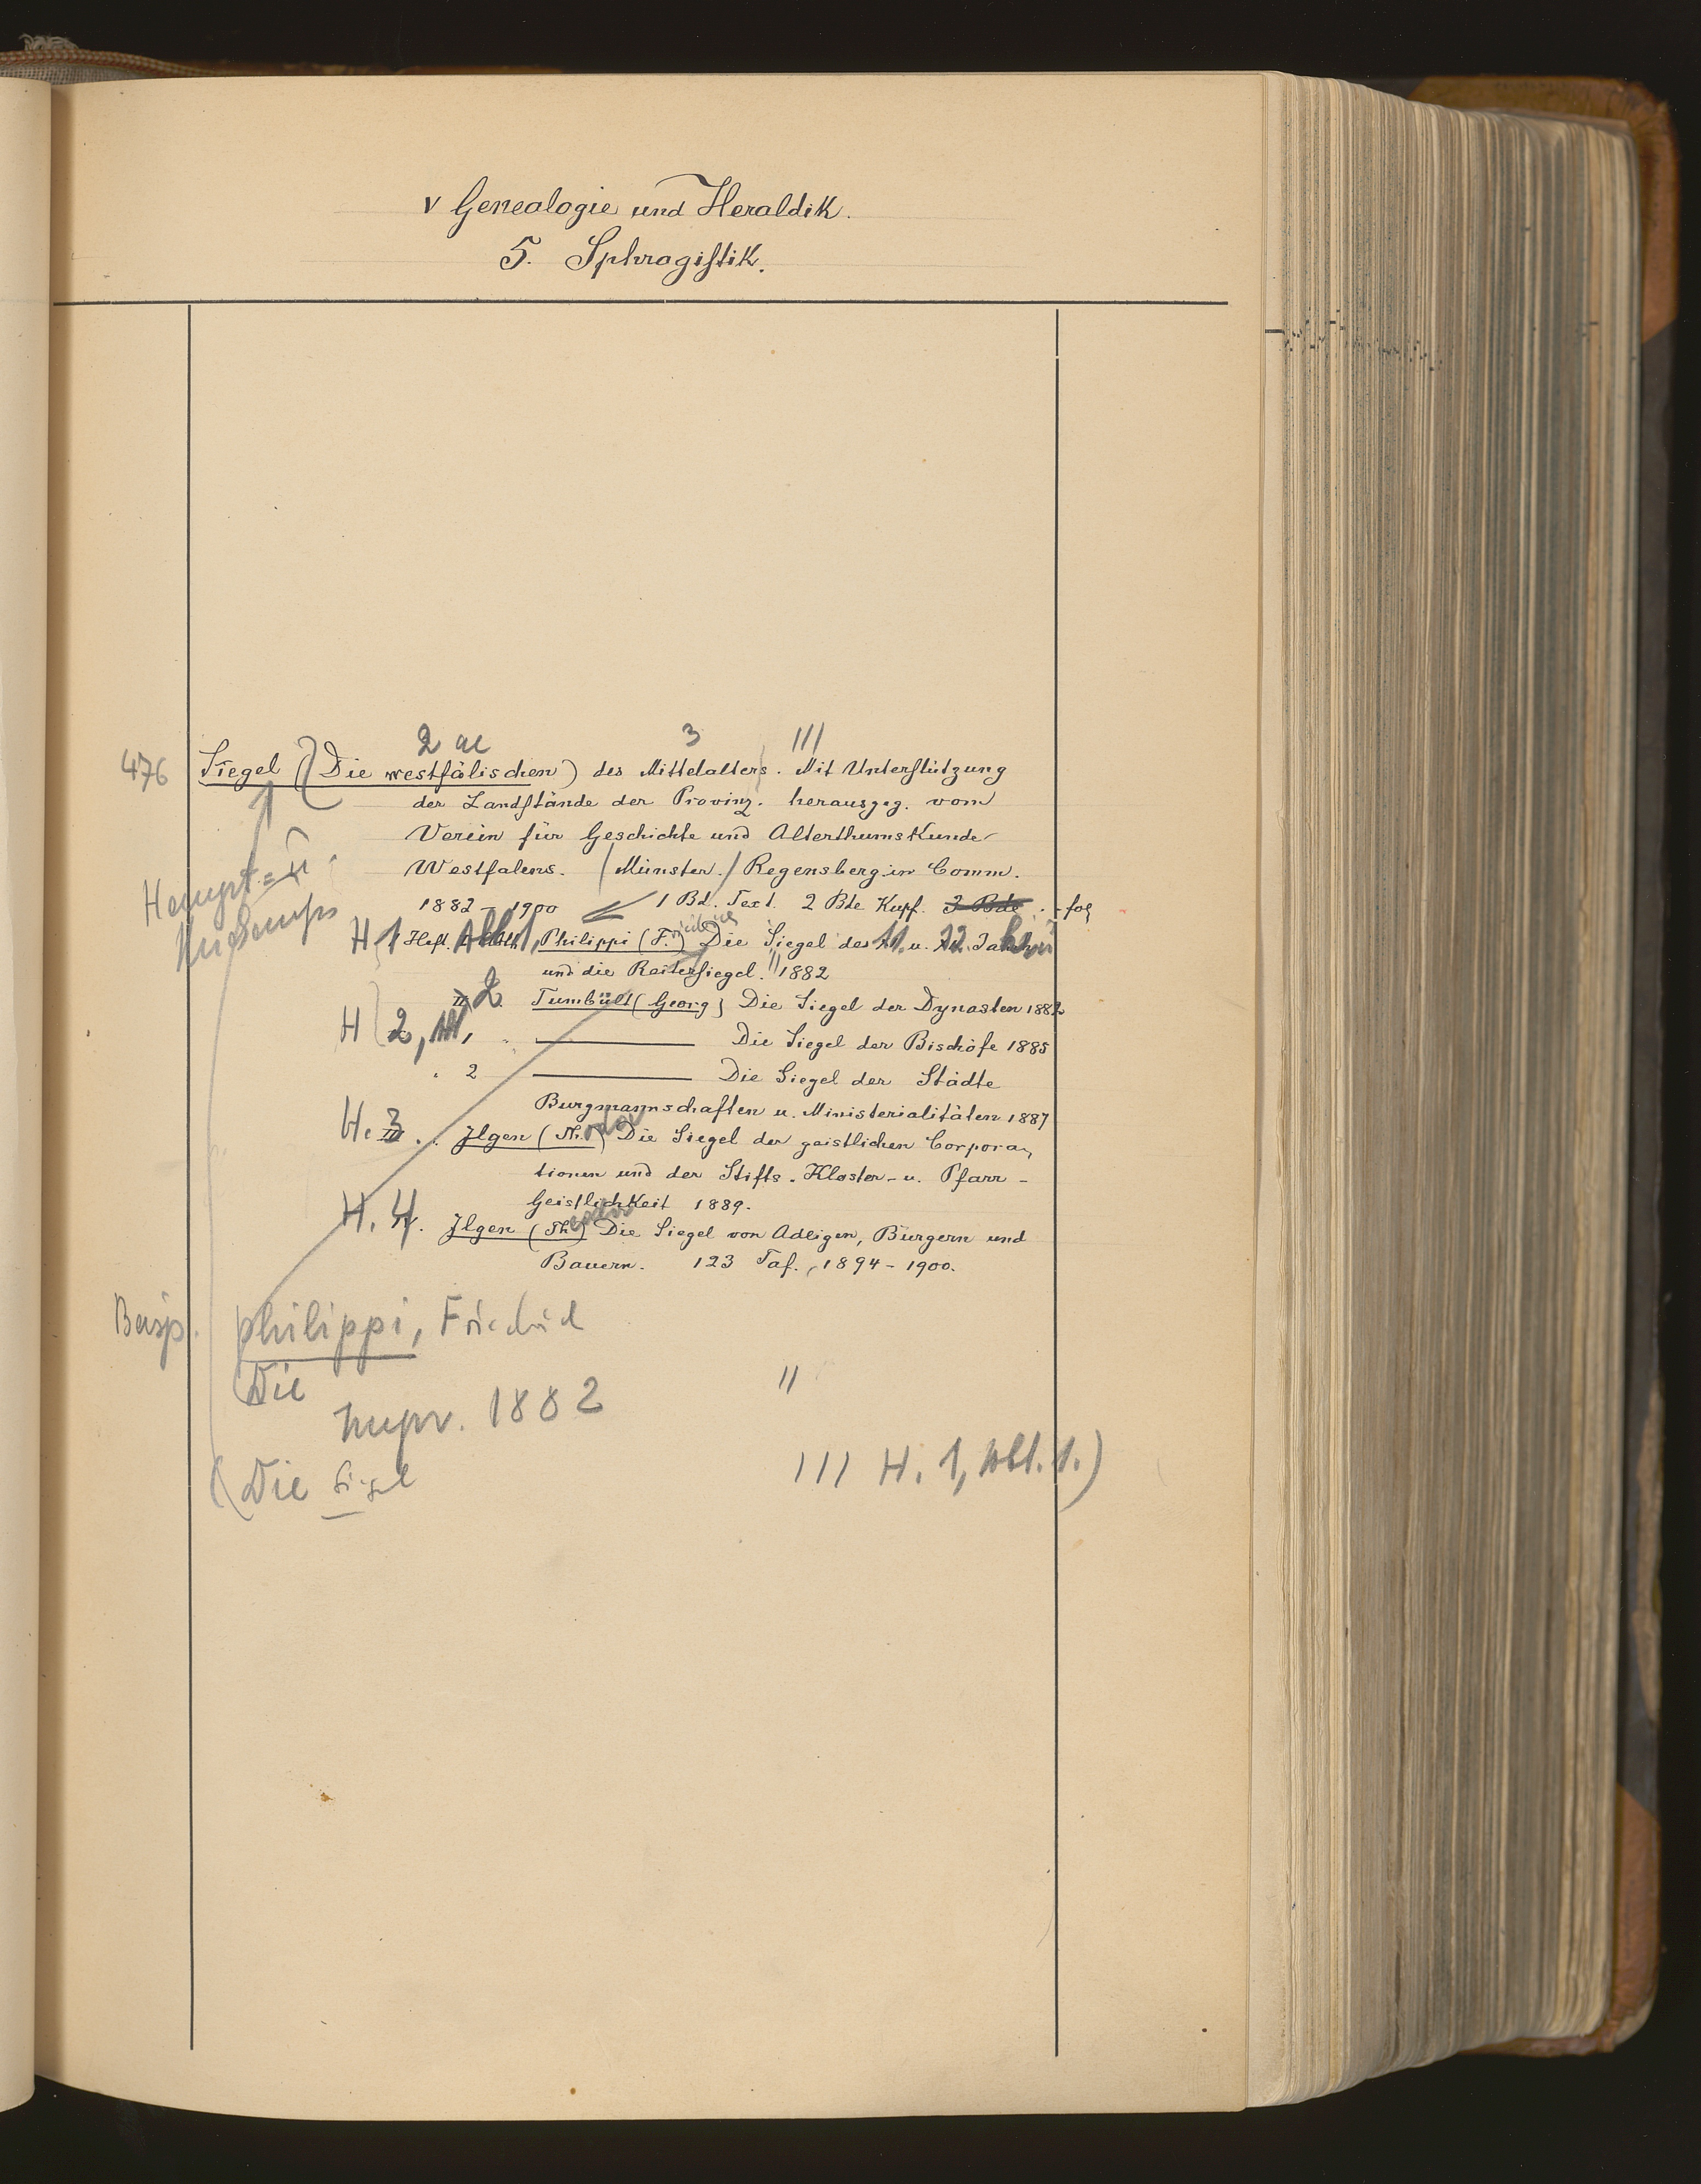 V Genealogie und Heraldik.
5. Sphragistik.
2 ae 3 III
476 Siegel (Die westfälischen) des Mittelalters. Mit Unterstützung
der Landstände der Provinz. herausgeg. vom
Verein für Geschichte und Alterthumskunde
Westfalens. (Münster.) Regensberg in Comm.
1882-1900 1 Bd. Text. 2 Bde Kupf. 3 Bde. - fol
H 1 Heft. Abth. 1, Philippi (F.riedrich) Die Siegel des 11. u. 12. Jahrh.
und die Reitersiegel. 1882
II 2 Tumbült (Georg) Die Siegel der Dynasten 1882
H 2, " ——— Die Siegel der Bischöfe 1885
" 2 ——— Die Siegel der Städte
Burgmannschaften u. Ministerialitäten 1887
H. 3 III . . Jlgen (Theodor) Die Siegel der geistlichen Corpora-
tionen und der Stifts- Kloster- u. Pfarr-
Geistlichkeit 1889.
H. 4. Jlgen (Theodor) Die Siegel von Adligen, Bürgern und
Bauern. 123 Taf., 1894-1900.
Haupt= u.
Beisp. Philippi, Friedrich
(Die "
1882
(Die Siegel III H. 1, Abt. 1.)